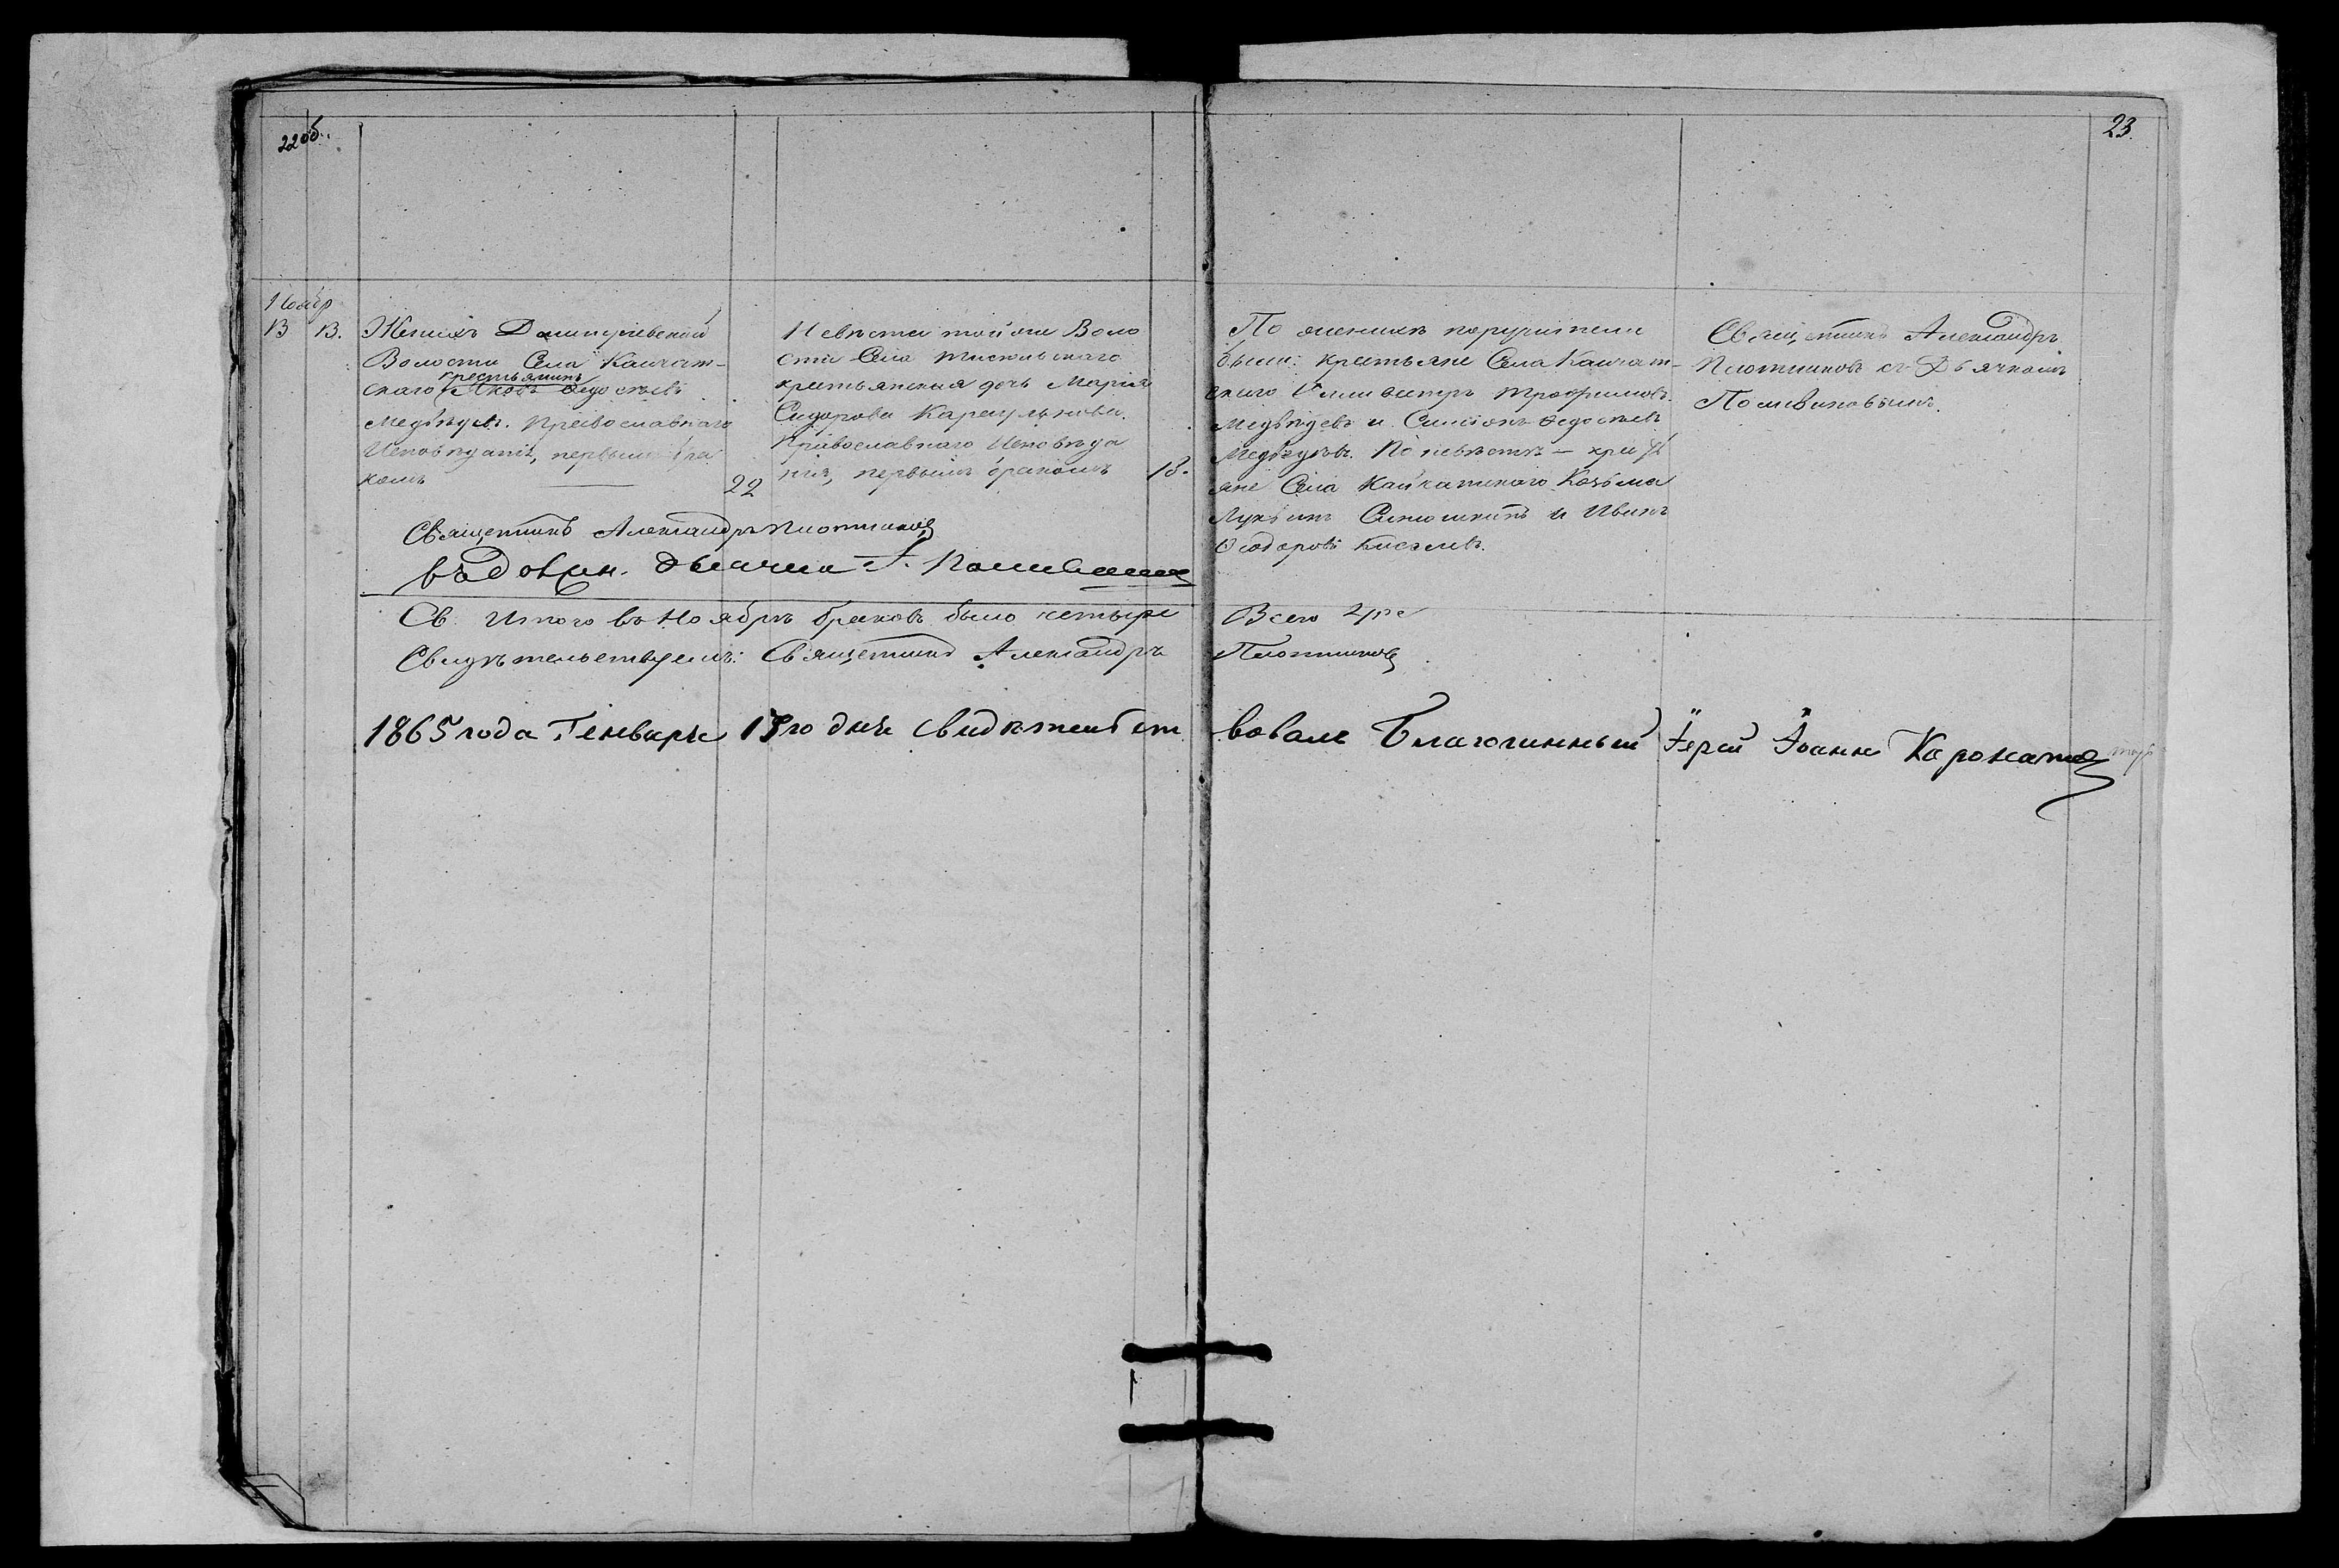 22 об.
23.
Ноябр
13 13.
Женихъ Дмитріевской
Волости Села Кайчат-
скаго крестьянинъ Яковъ Ѳедосѣевъ
Медвѣдевъ. Православнаго
Исповѣданія, первымъ бра
комъ
22
Невѣста той же Воло
сти Села
крестьянская дочь Марія
Сидорова Караульнова.
Православнаго Исповѣда
нія, первымъ бракомъ
18.
По женихѣ поручители
были: крестьяне Села Кайчат-
скаго Селивестръ Трофимовъ
Медвѣдевъ и Симеонъ Ѳедосѣевъ
Медвѣдевъ. По невѣстѣ - крест
яне Села Кайчатскаго Козьма
Лукинъ Синюшкинъ и Иванъ
Ѳеодоровъ Киселевъ.
Священникъ Александръ
Плотниковъ съ Дьячкомъ
Поливановымъ.
Священникъ Александръ Плотниковъ
дьячка Поливановъ
Св. Итого въ Ноябрѣ браковъ было четыре Всего
Свидѣтельствуемъ: Священникъ Александръ Плотниковъ
1865 года Генваря 15го дня свидѣтельст вовалъ Благочинный Іерей Іоаннъ